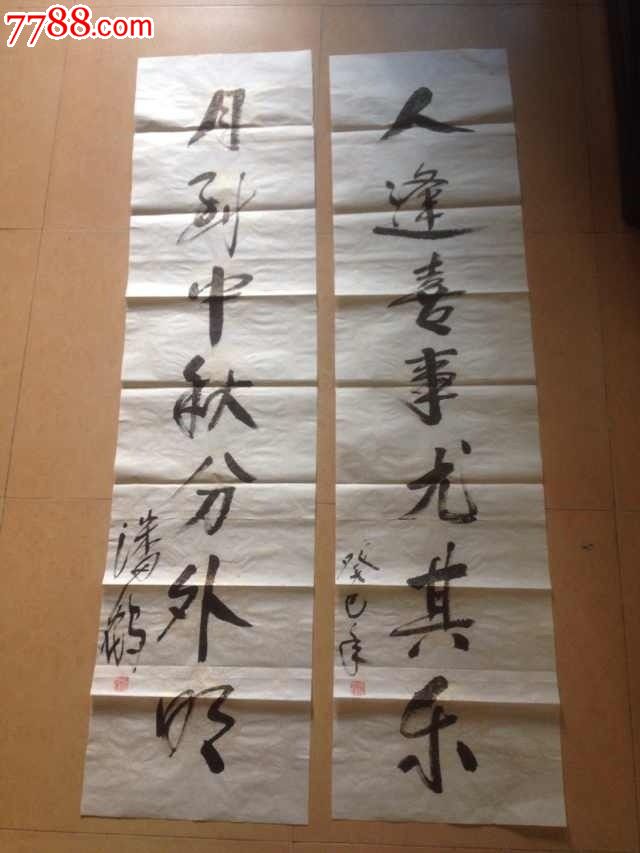 7788.com
人逢喜事尤其乐
癸巳年
月到中秋分外明
潘鹤